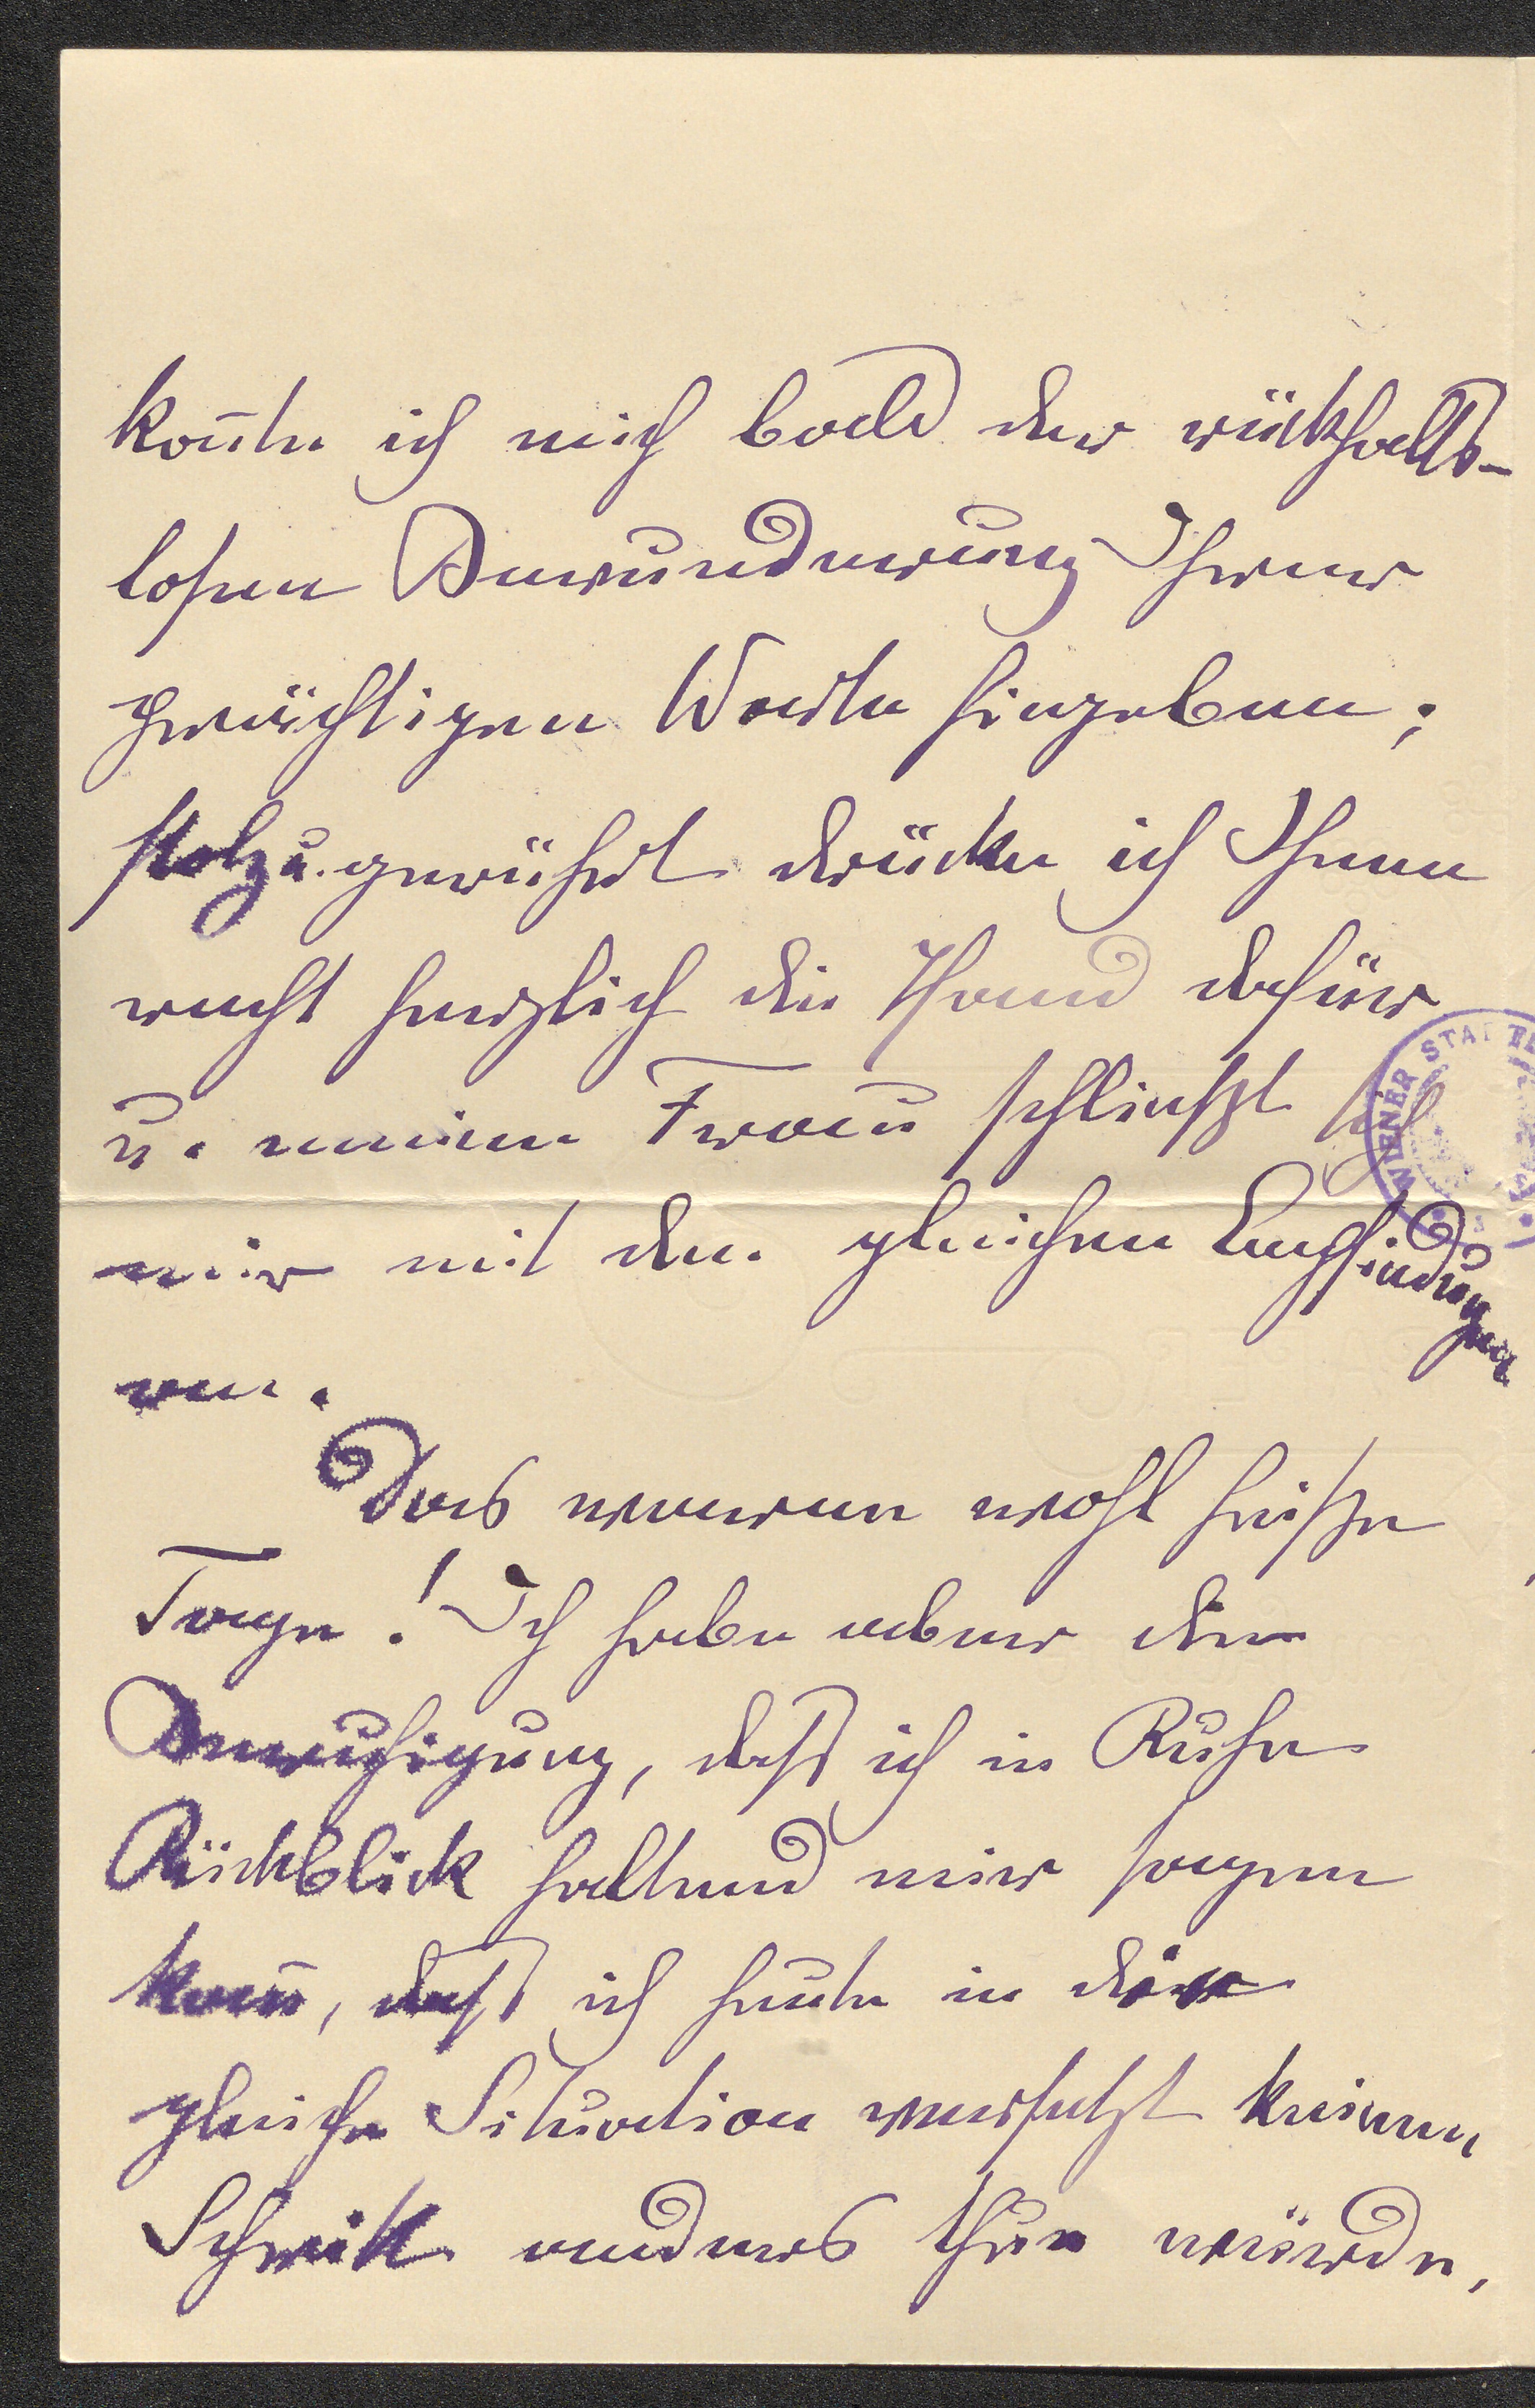 koñte ich mich bald der rückhalts-
losen Bewunderung Ihrer
prächtigen Worte hingeben;
stolz u. gerührt drücke ich Ihnen
recht herzlich die Hand dafür
u. meine Frau schließt sich
mir mit den gleichen Empfindungen
an.
Das waren wohl heiße
Tage! Ich habe aber die
Beruhigung, daß ich in Ruhe
Rückblick haltend mir sagen
kañ, daß ich heute in die
gleiche Situation versetzt keinen
Schritt anders thun würde,
WIENER STADTBI